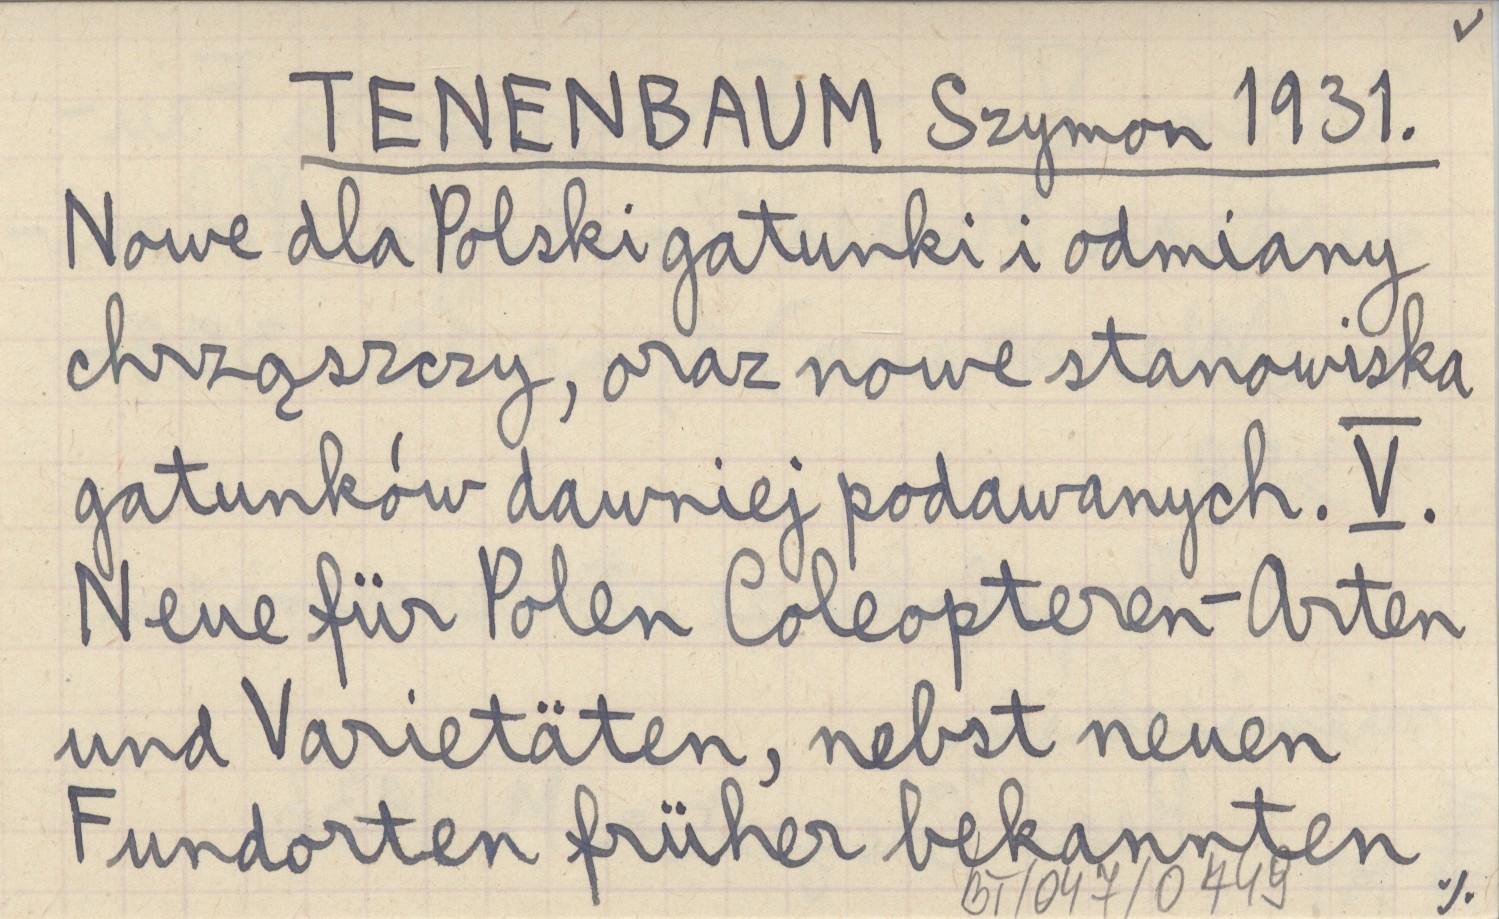 TENENBAUM Szymon 1931.
Nowe dla Polski gatunki i odmiany
chrząszczy, oraz nowe stanowiska
gatunków dawniej podawanych. V.
Neue für Polen Coleopteren-Arten
und Varietäten, nebst neuen
Fundorten früher bekannten
BT/047/0449
./.